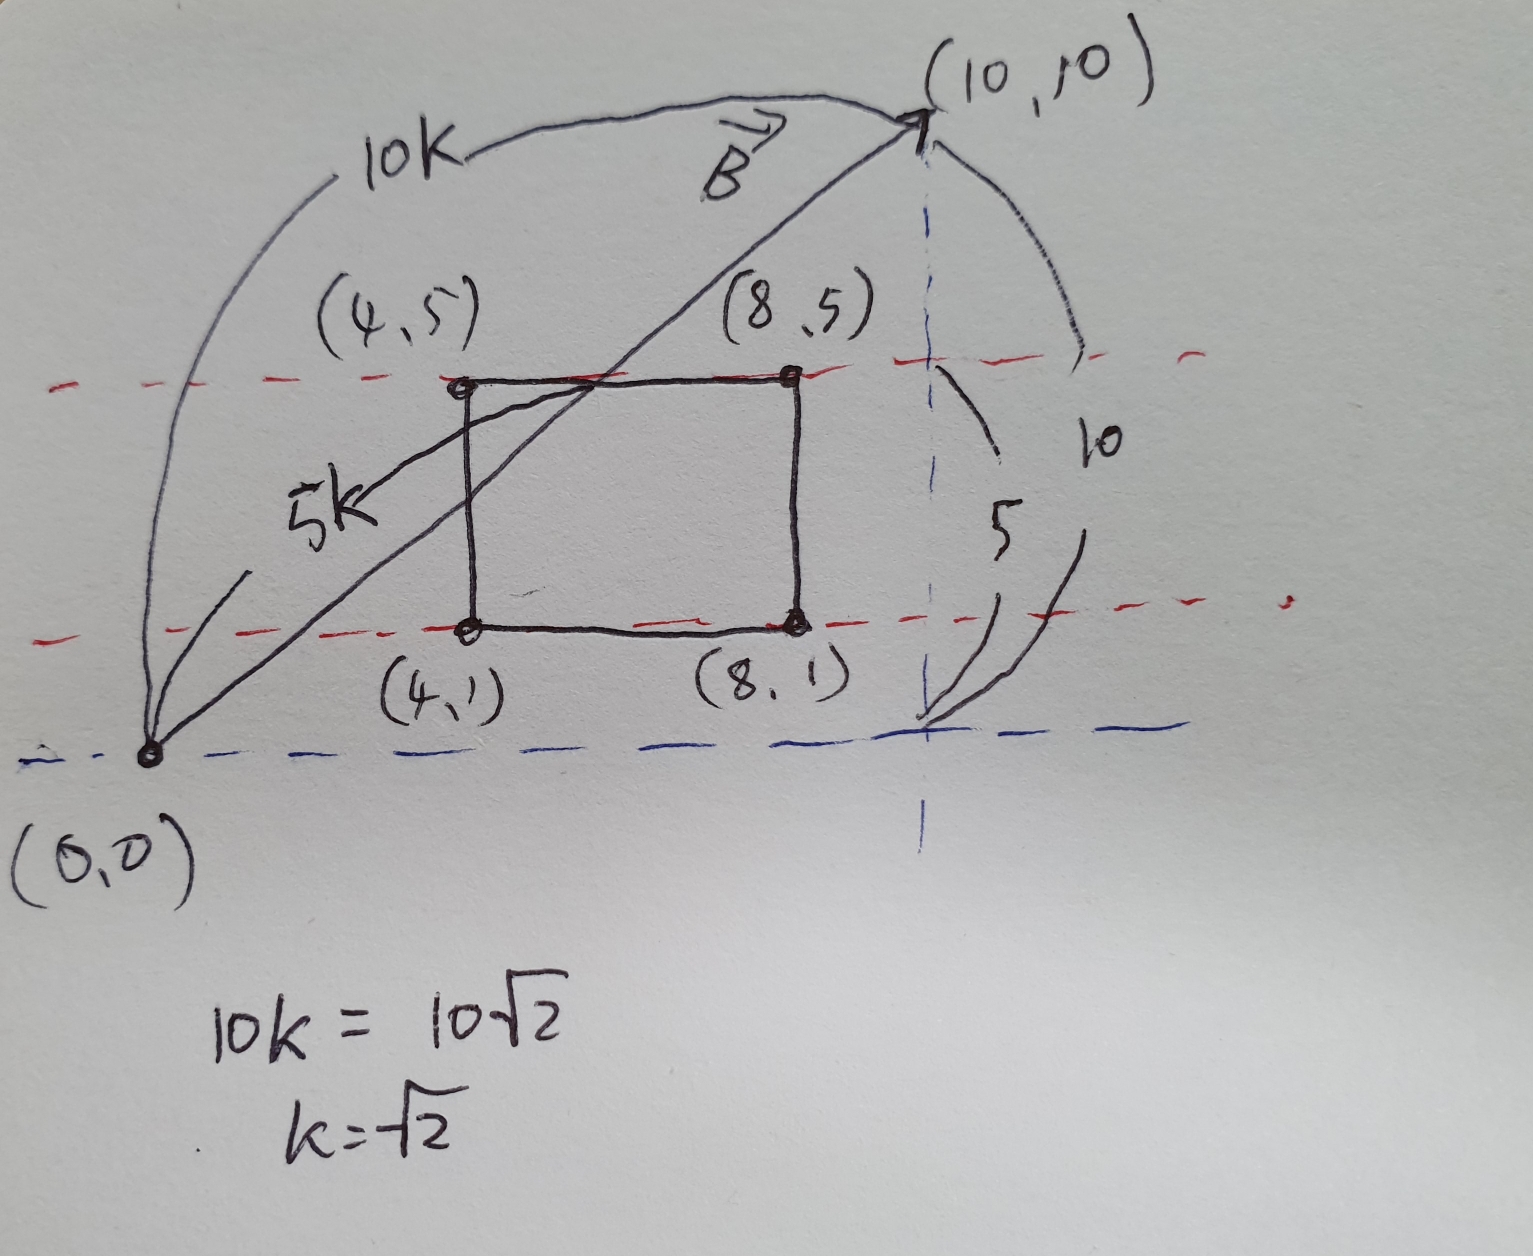 (10,10)
10k
B
(4,5)
(8,5)
10
5k
5
(4,1)
(8,1)
(0,0)
10k = 10√2
k=√2